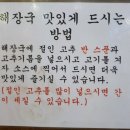 해장국 맛있게 드시는
방법
해장국에 절인 고추 반 스푼과
고추기름을 넣으시고 고기를 겨
자 소스에 찍어서 드시면 더욱
맛있게 즐기실 수 있습니다.
(절인 고추를 많이 넣으시면 간
이 세질 수 있습니다.)